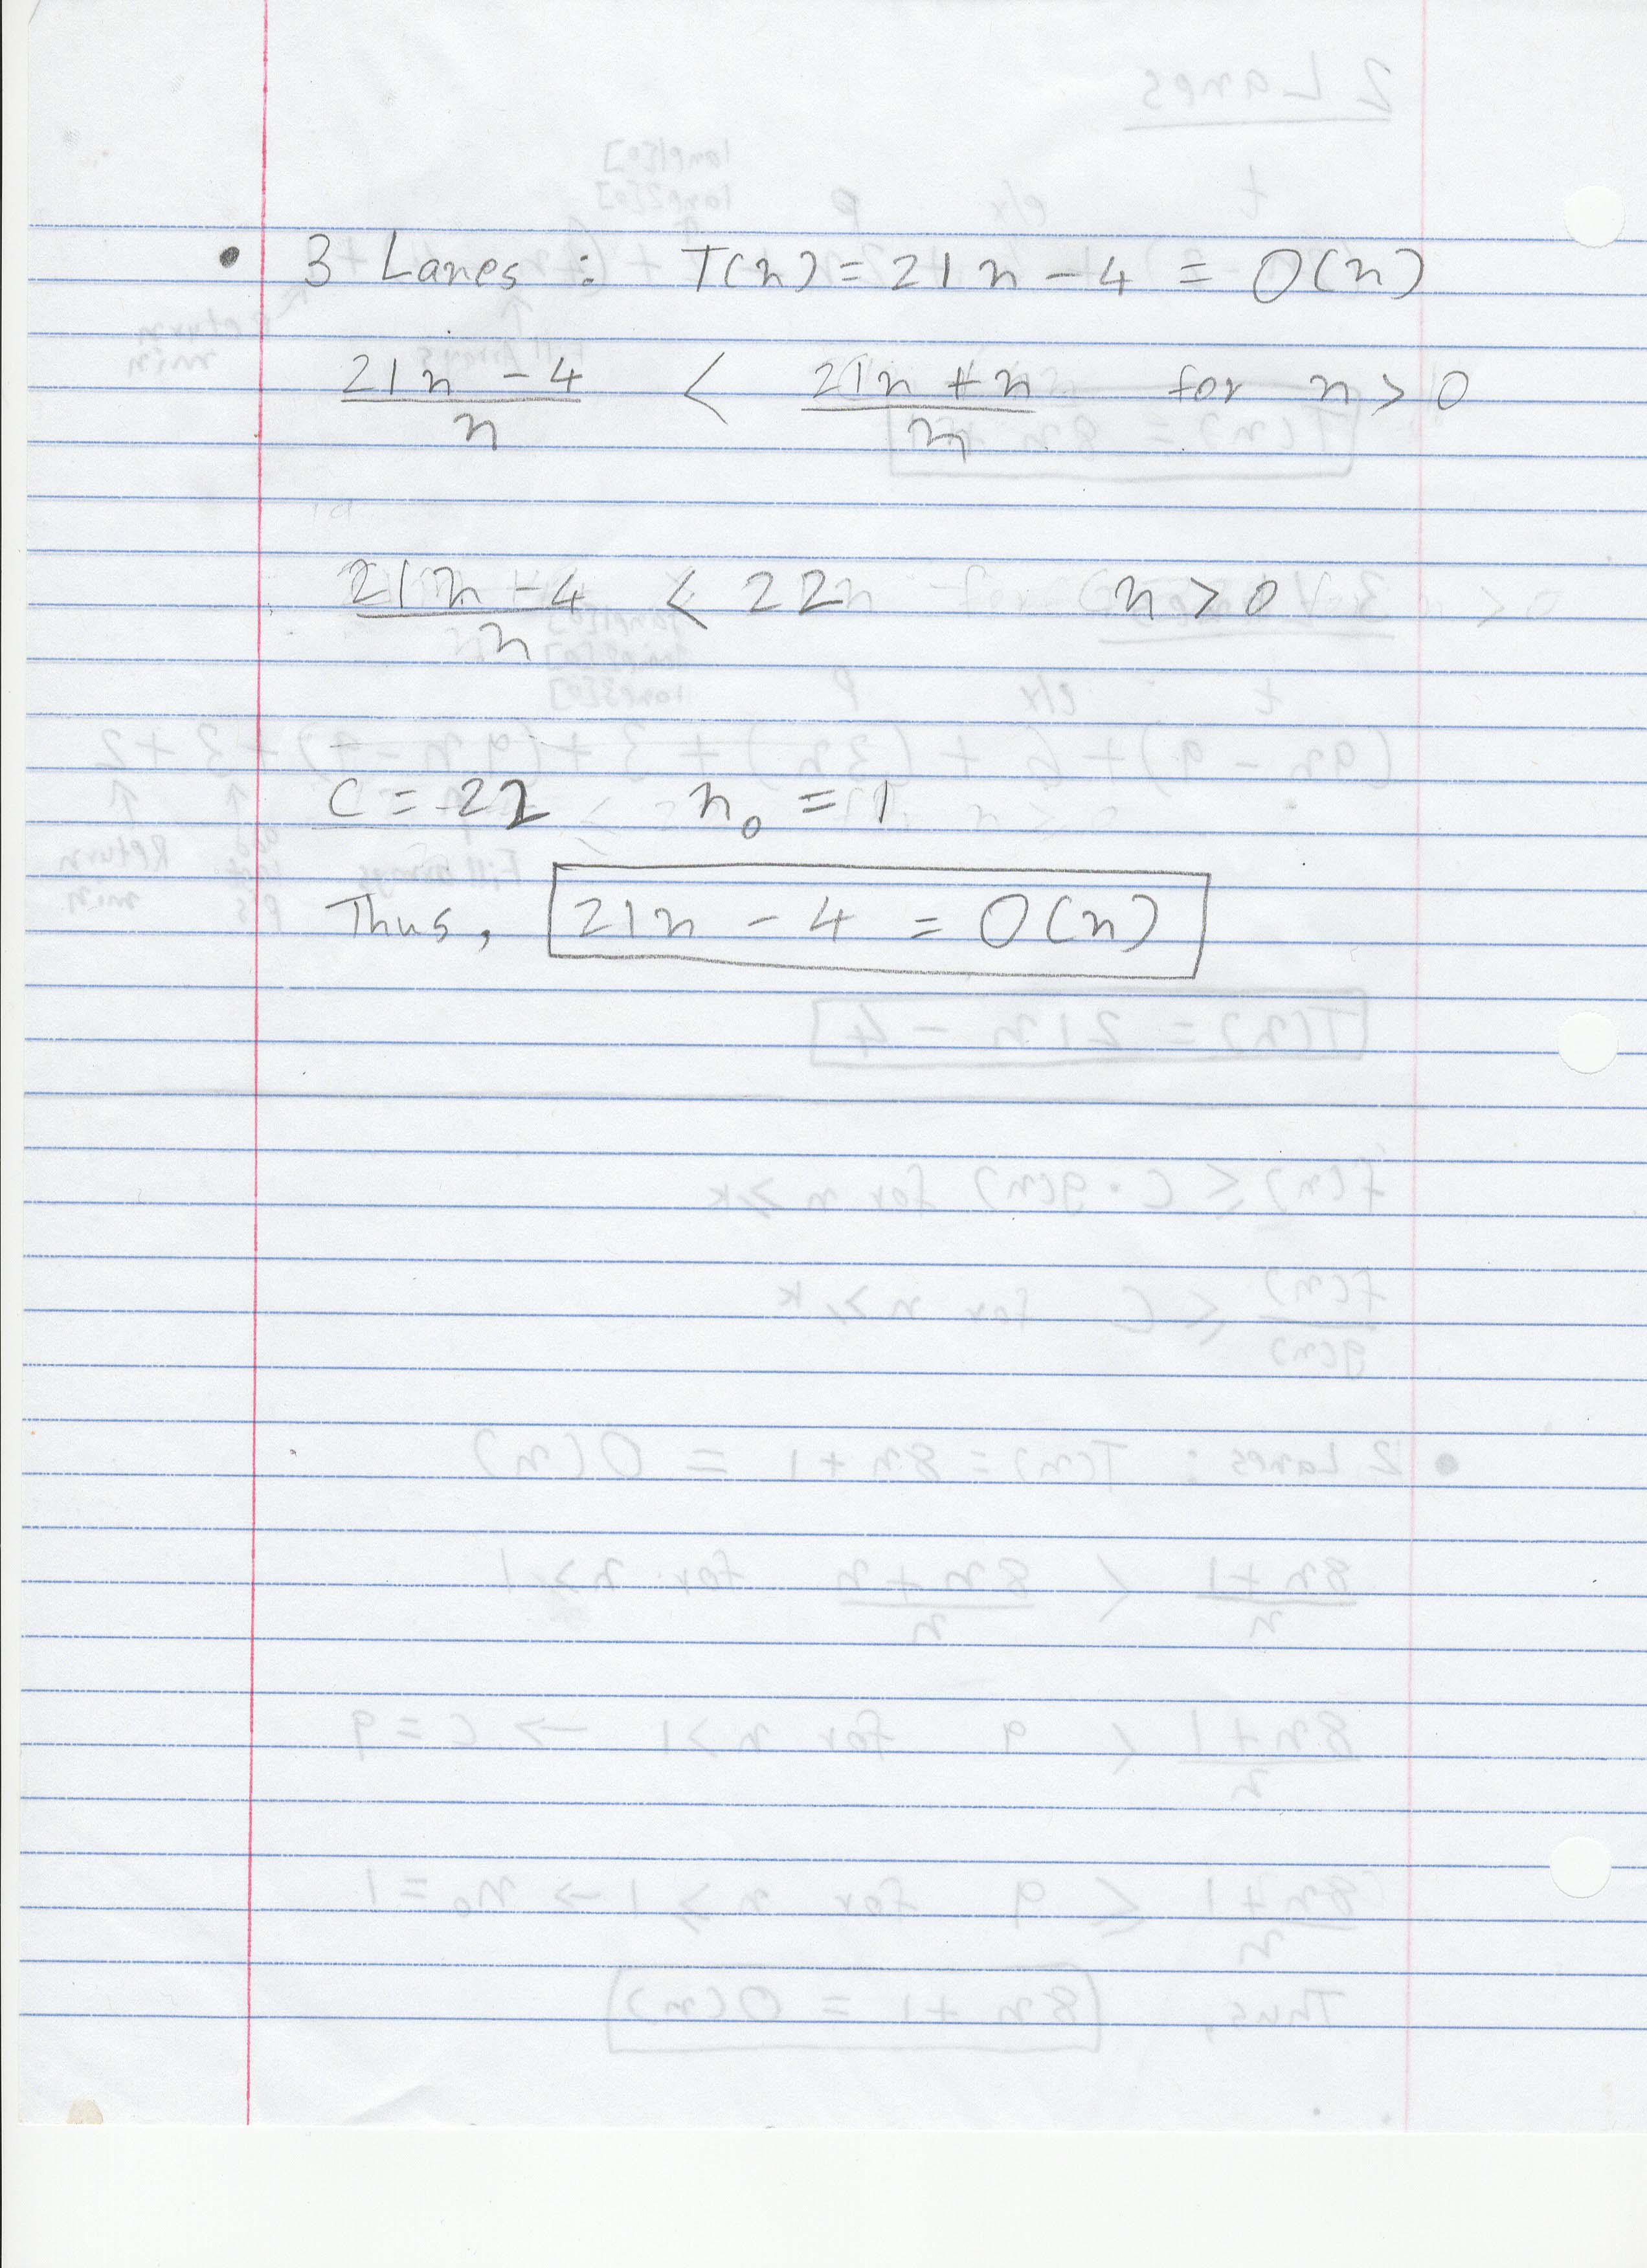 • 3 Lanes : T(n) = 21n - 4 = O(n)
21n - 4 / n < 21n + n / n for n > 0
21n - 4 / n < 22n n > 0
C = 22 n₀ = 1
Thus, 21n - 4 = O(n)